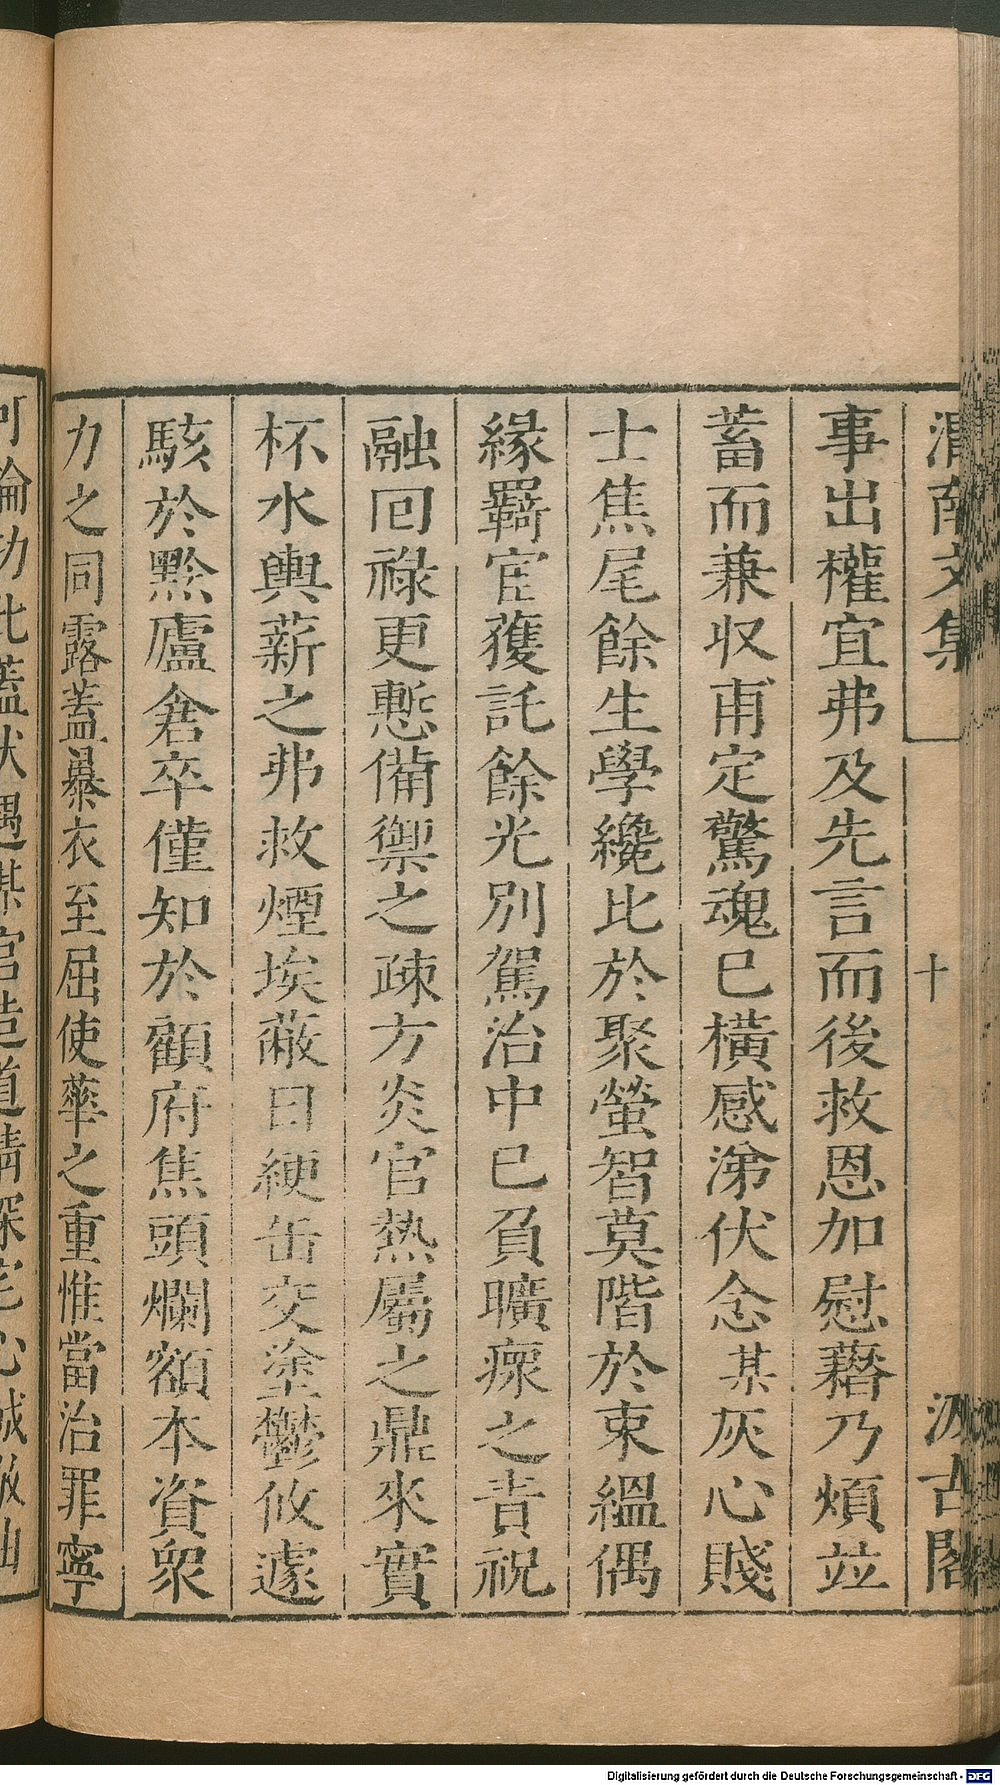 渭南文集 十 汲古閣
事出權宜弗及先言而後救恩加慰藉乃煩竝
蓄而兼収甫定驚魂已橫感涕伏念某灰心賤
士焦尾餘生學纔比於聚螢智莫階於束縕偶
緣羇宦獲託餘光別駕治中已負曠瘝之責祝
融回祿更慙備禦之疎方炎官熱屬之鼎來實
杯水輿薪之弗救煙埃蔽日綆缶交塗鬱攸遽
駭於黔廬倉卒僅知於顧府焦頭爛額本資衆
力之同露蓋暴衣至屈使華之重惟當治罪寧
可論功此蓋伏遇某官造道精深宅心誠
Digitalisierung gefördert durch die Deutsche Forschungsgemeinschaft - DFG